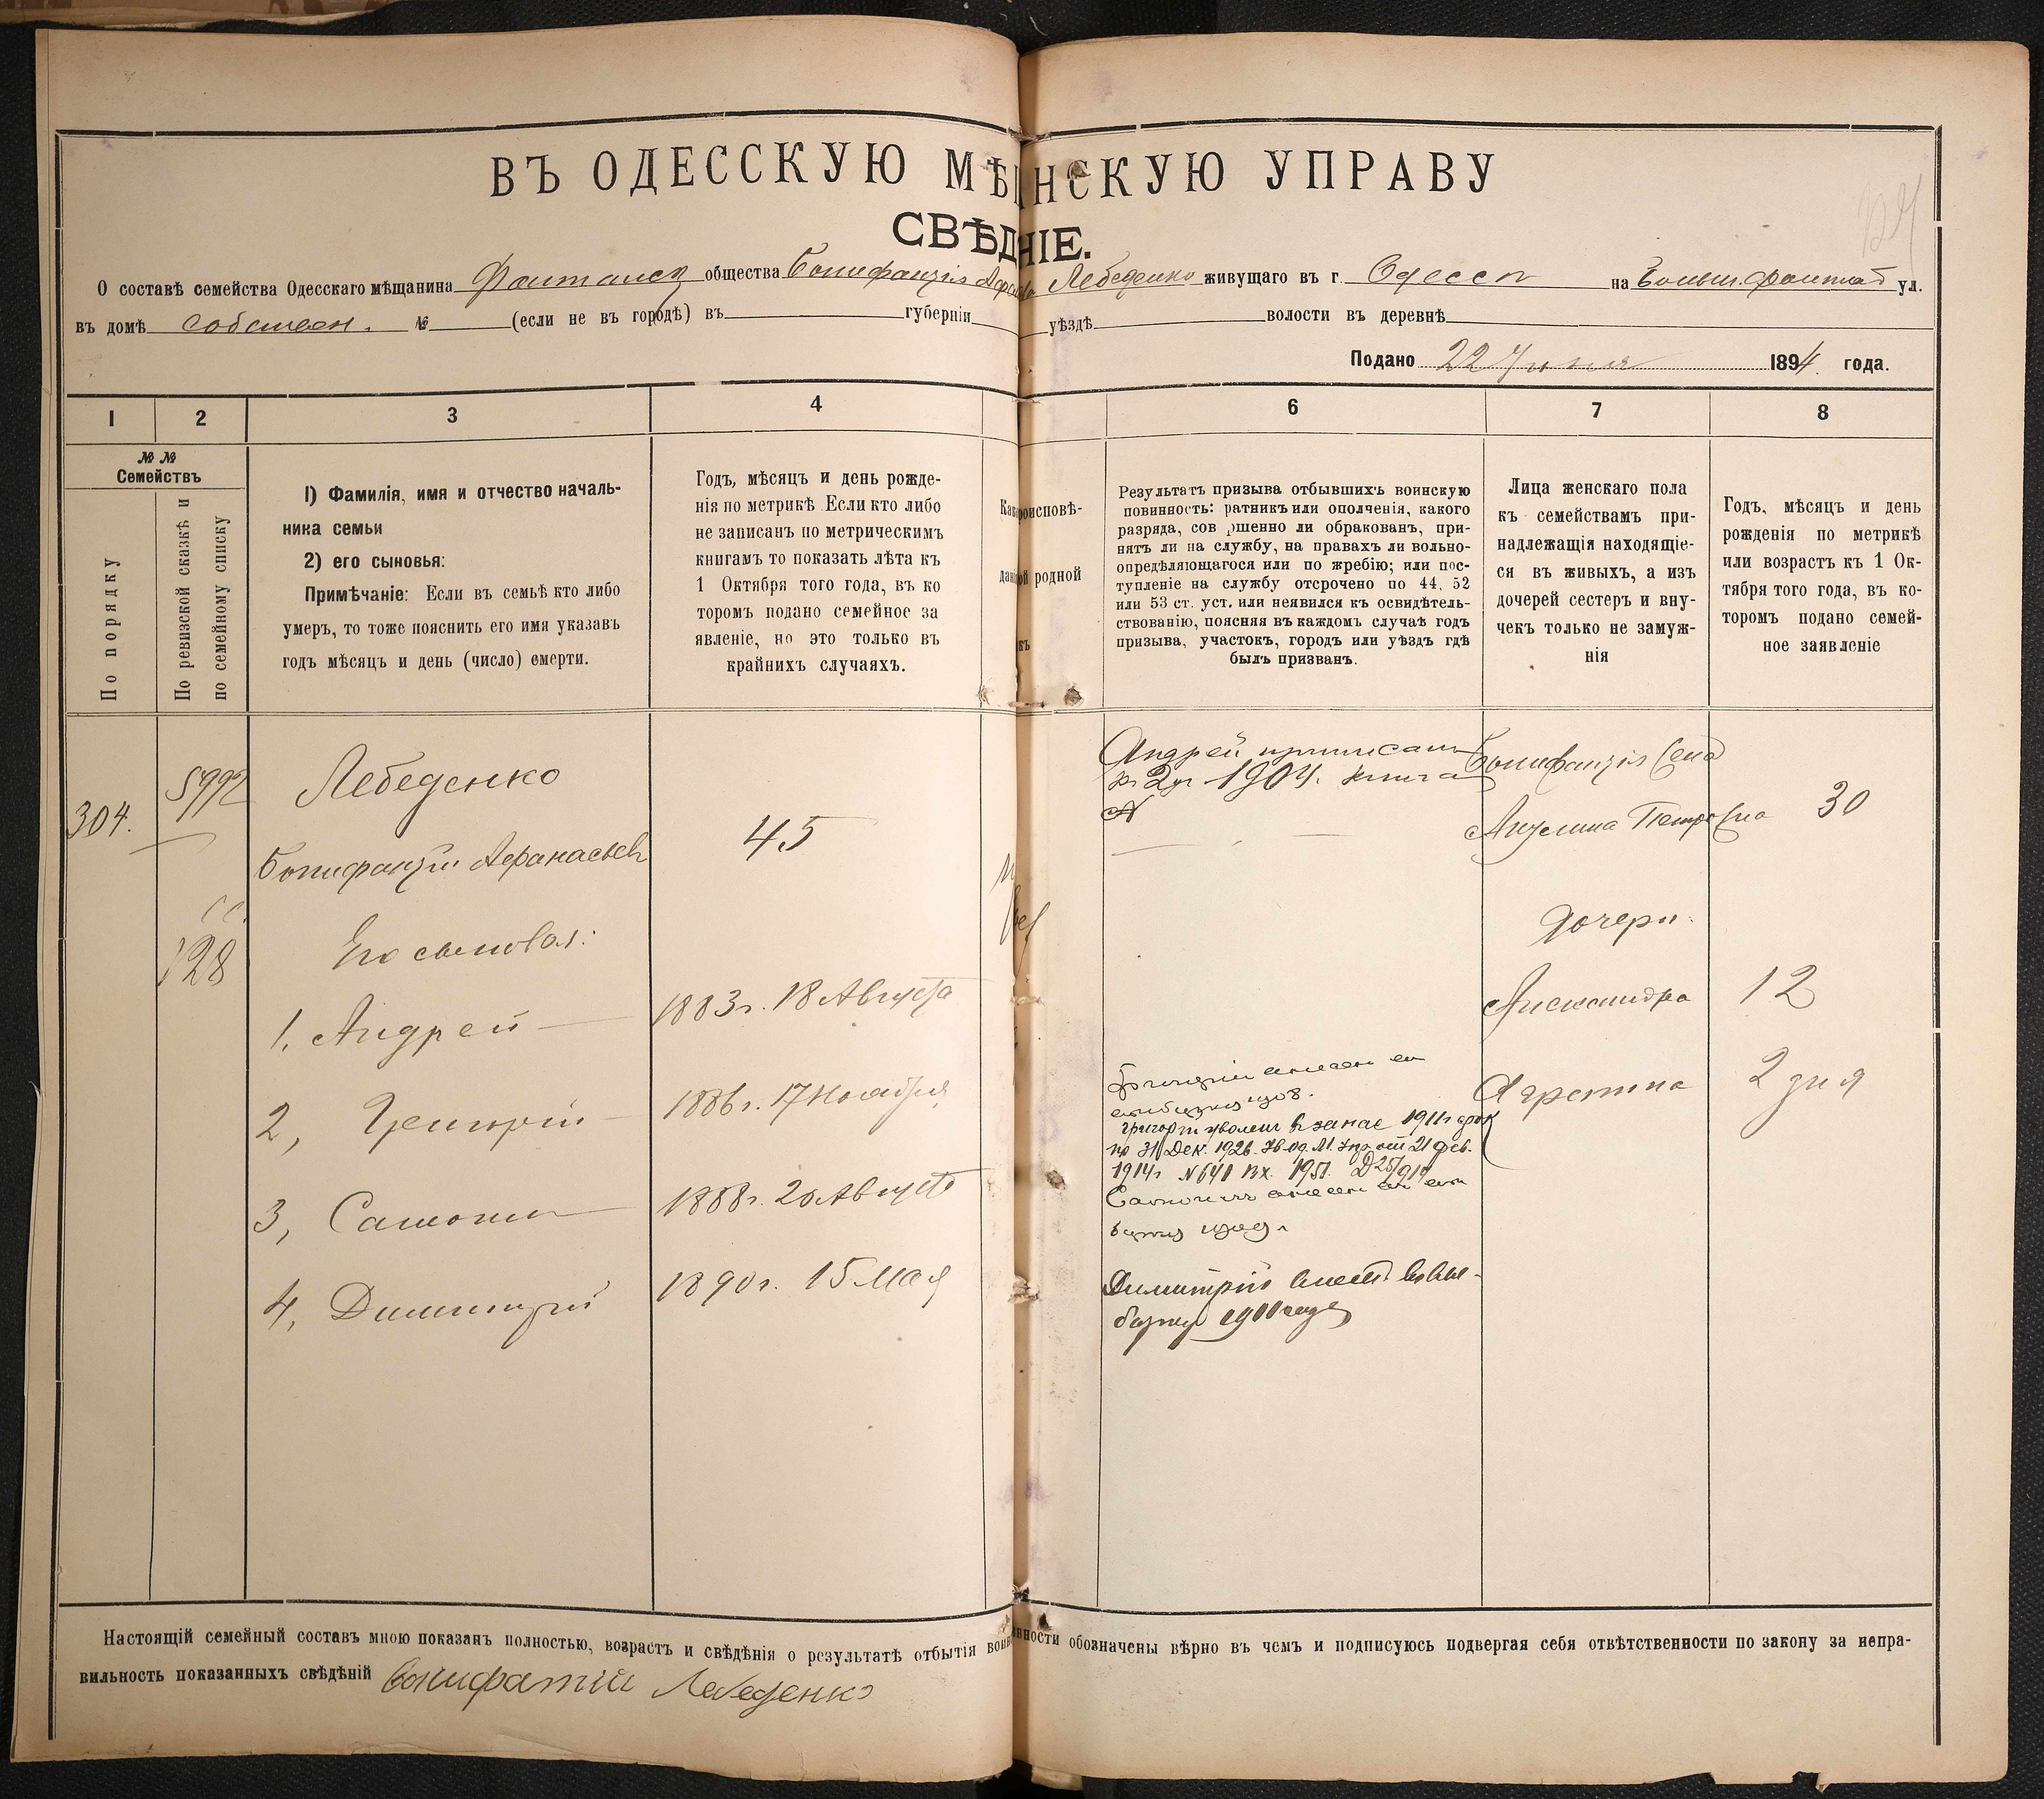 ВЪ ОДЕССКУЮ МѢ НСКУЮ УПРАВУ
СВѢД НІЕ.
О составѣ семейства Одесскаго мѣщанина Фонтанск общества Бонифанція Лебеденко живущаго въ г. Одессѣ на Больш. Фонтан ул.
въ домѣ собствен. № (если не въ городѣ) въ губерніи уѣздѣ волости въ деревнѣ
Подано 22 Іюня 1894 года.
1 2 3 4 6 7 8
№ №
Семействъ
По порядку
По ревизской сказкѣ и
по семейному списку
1) Фамилія, имя и отчество началь-
ника семьи
2) его сыновья:
Примѣчаніе: Если въ семьѣ кто либо
умеръ, то тоже пояснить его имя указавъ
годъ мѣсяцъ и день (число) смерти.
Годъ, мѣсяцъ и день рожде-
нія по метрикѣ Если кто либо
не записанъ по метрическимъ
книгамъ то показать лѣта къ
1 Октября того года, въ ко
торомъ подано семейное за
явленіе, но это только въ
крайнихъ случаяхъ.
роисповѣ-
родной
Результатъ призыва отбывшихъ воинскую
повинность: ратникъ или ополченія, какого
разряда, сов ршенно ли обракованъ, при-
нятъ ли на службу, на правахъ ли вольно-
опредѣляющагося или по жребію; или пос-
тупленіе на службу отсрочено по 44, 52
или 53 ст. уст. или неявился къ освидѣтель-
ствованію, поясняя въ каждомъ случаѣ годъ
призыва, участокъ, городъ или уѣздъ гдѣ
былъ призванъ.
Лица женскаго пола
къ семействамъ при-
надлежащія находящіе-
ся въ живыхъ, а изъ
дочерей сестеръ и вну-
чекъ только не замуж-
нія
Годъ, мѣсяцъ и день
рожденія по метрикѣ
или возрастъ къ 1 Ок-
тября того года, въ ко-
торомъ подано семей-
ное заявленіе
304.
5992
128
Лебеденко
Бонифанцій Афанасьев
45
Его сыновья:
1. Андрей
1883г. 18 Августа
2, Григорій
1886г. 17 Ноября
3, Самоил
1888г. 20 Августа
4, Димитрій
1890г. 15 Мая
Андрей приписан
1904. книга
Григорій внесен
Григорій уволен в запас 1911г срок
по 31 Дек. 1926. от 21 фев.
1914г №641 Вх. 1951
внесен
Димитрій внесен въ вы-
борку 1911 года
Бонифанція жена
Анжелина Петровна 30
Дочери.
Александра 12
Агрепина 2 дня
Настоящій семейный составъ мною показанъ полностью, возрастъ и свѣдѣнія о результатѣ отбытія воин нности обозначены вѣрно въ чемъ и подписуюсь подвергая себя отвѣтственности по закону за непра-
вильность показанныхъ свѣдѣній Бонифатій Лебеденко